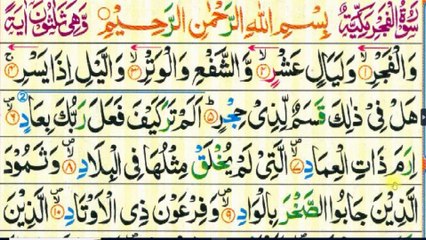 سُوْرَةُ الْفَجْرِ مَكِّيَّةٌ بِسْمِ اللّٰهِ الرَّحْمٰنِ الرَّحِيْمِ وَهِىَ ثَلٰثُوْنَ اٰيَةً
وَالْفَجْرِ ۙ﴿۱﴾ وَلَيَالٍ عَشْرٍ ۙ﴿۲﴾ وَّالشَّفْعِ وَالْوَتْرِ ۙ﴿۳﴾ وَالَّيْلِ اِذَا يَسْرِ ۚ﴿۴﴾
هَلْ فِىْ ذٰلِكَ قَسَمٌ لِّذِىْ حِجْرٍ ؕ﴿۵﴾ اَلَمْ تَرَ كَيْفَ فَعَلَ رَبُّكَ بِعَادٍ ۪ۙ﴿۶﴾
اِرَمَ ذَاتِ الْعِمَادِ ۪ۙ﴿۷﴾ الَّتِىْ لَمْ يُخْلَقْ مِثْلُهَا فِى الْبِلَادِ ۪ۙ﴿۸﴾ وَثَمُوْدَ
الَّذِيْنَ جَابُوا الصَّخْرَ بِالْوَادِ ۪ۙ﴿۹﴾ وَفِرْعَوْنَ ذِى الْاَوْتَادِ ۪ۙ﴿۱۰﴾ الَّذِيْنَ